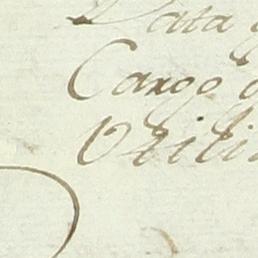 Data
Cargo
Utili